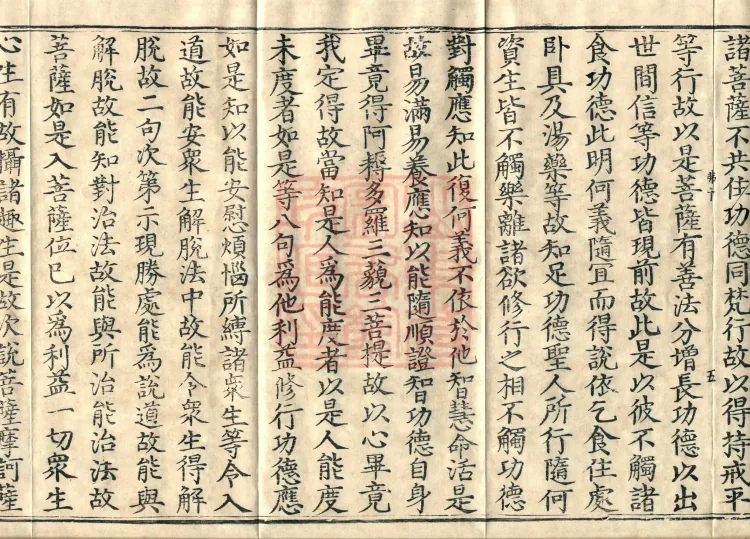 諸菩薩不共住功德同梵行故以得持戒平
等行故以是菩薩有善法分增長功德以出
世間信等功德皆現前故此是以彼不觸諸
食功德此明何義隨宜而得說依乞食住處
卧具及湯藥等故知足功德聖人所行隨何
資生皆不觸樂離諸欲修行之相不觸功德
對觸應知此復何義不依於他智慧命活是
故易滿易養應知以能隨順證智功德自身
畢竟得阿耨多羅三藐三菩提故以心畢竟
我定得故當知是人為能度者以是人能度
未度者如是等八句為他利益修行功德應
如是知以能安慰煩惱所縛諸衆生等令入
道故能安衆生解脫法中故能令衆生得解
脫故二句次第示現勝處能為說道故能與
解脫故能知對治法故能與所治能治法故
菩薩如是入菩薩位已以為利益一切衆生
心生有故攝諸趣生是故次說菩薩摩訶薩
五